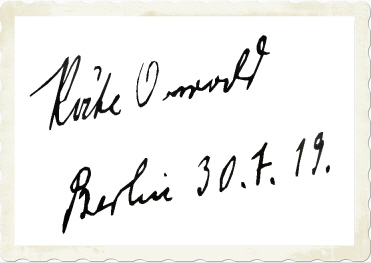 Käthe Oswald
Berlin 30.7.19.